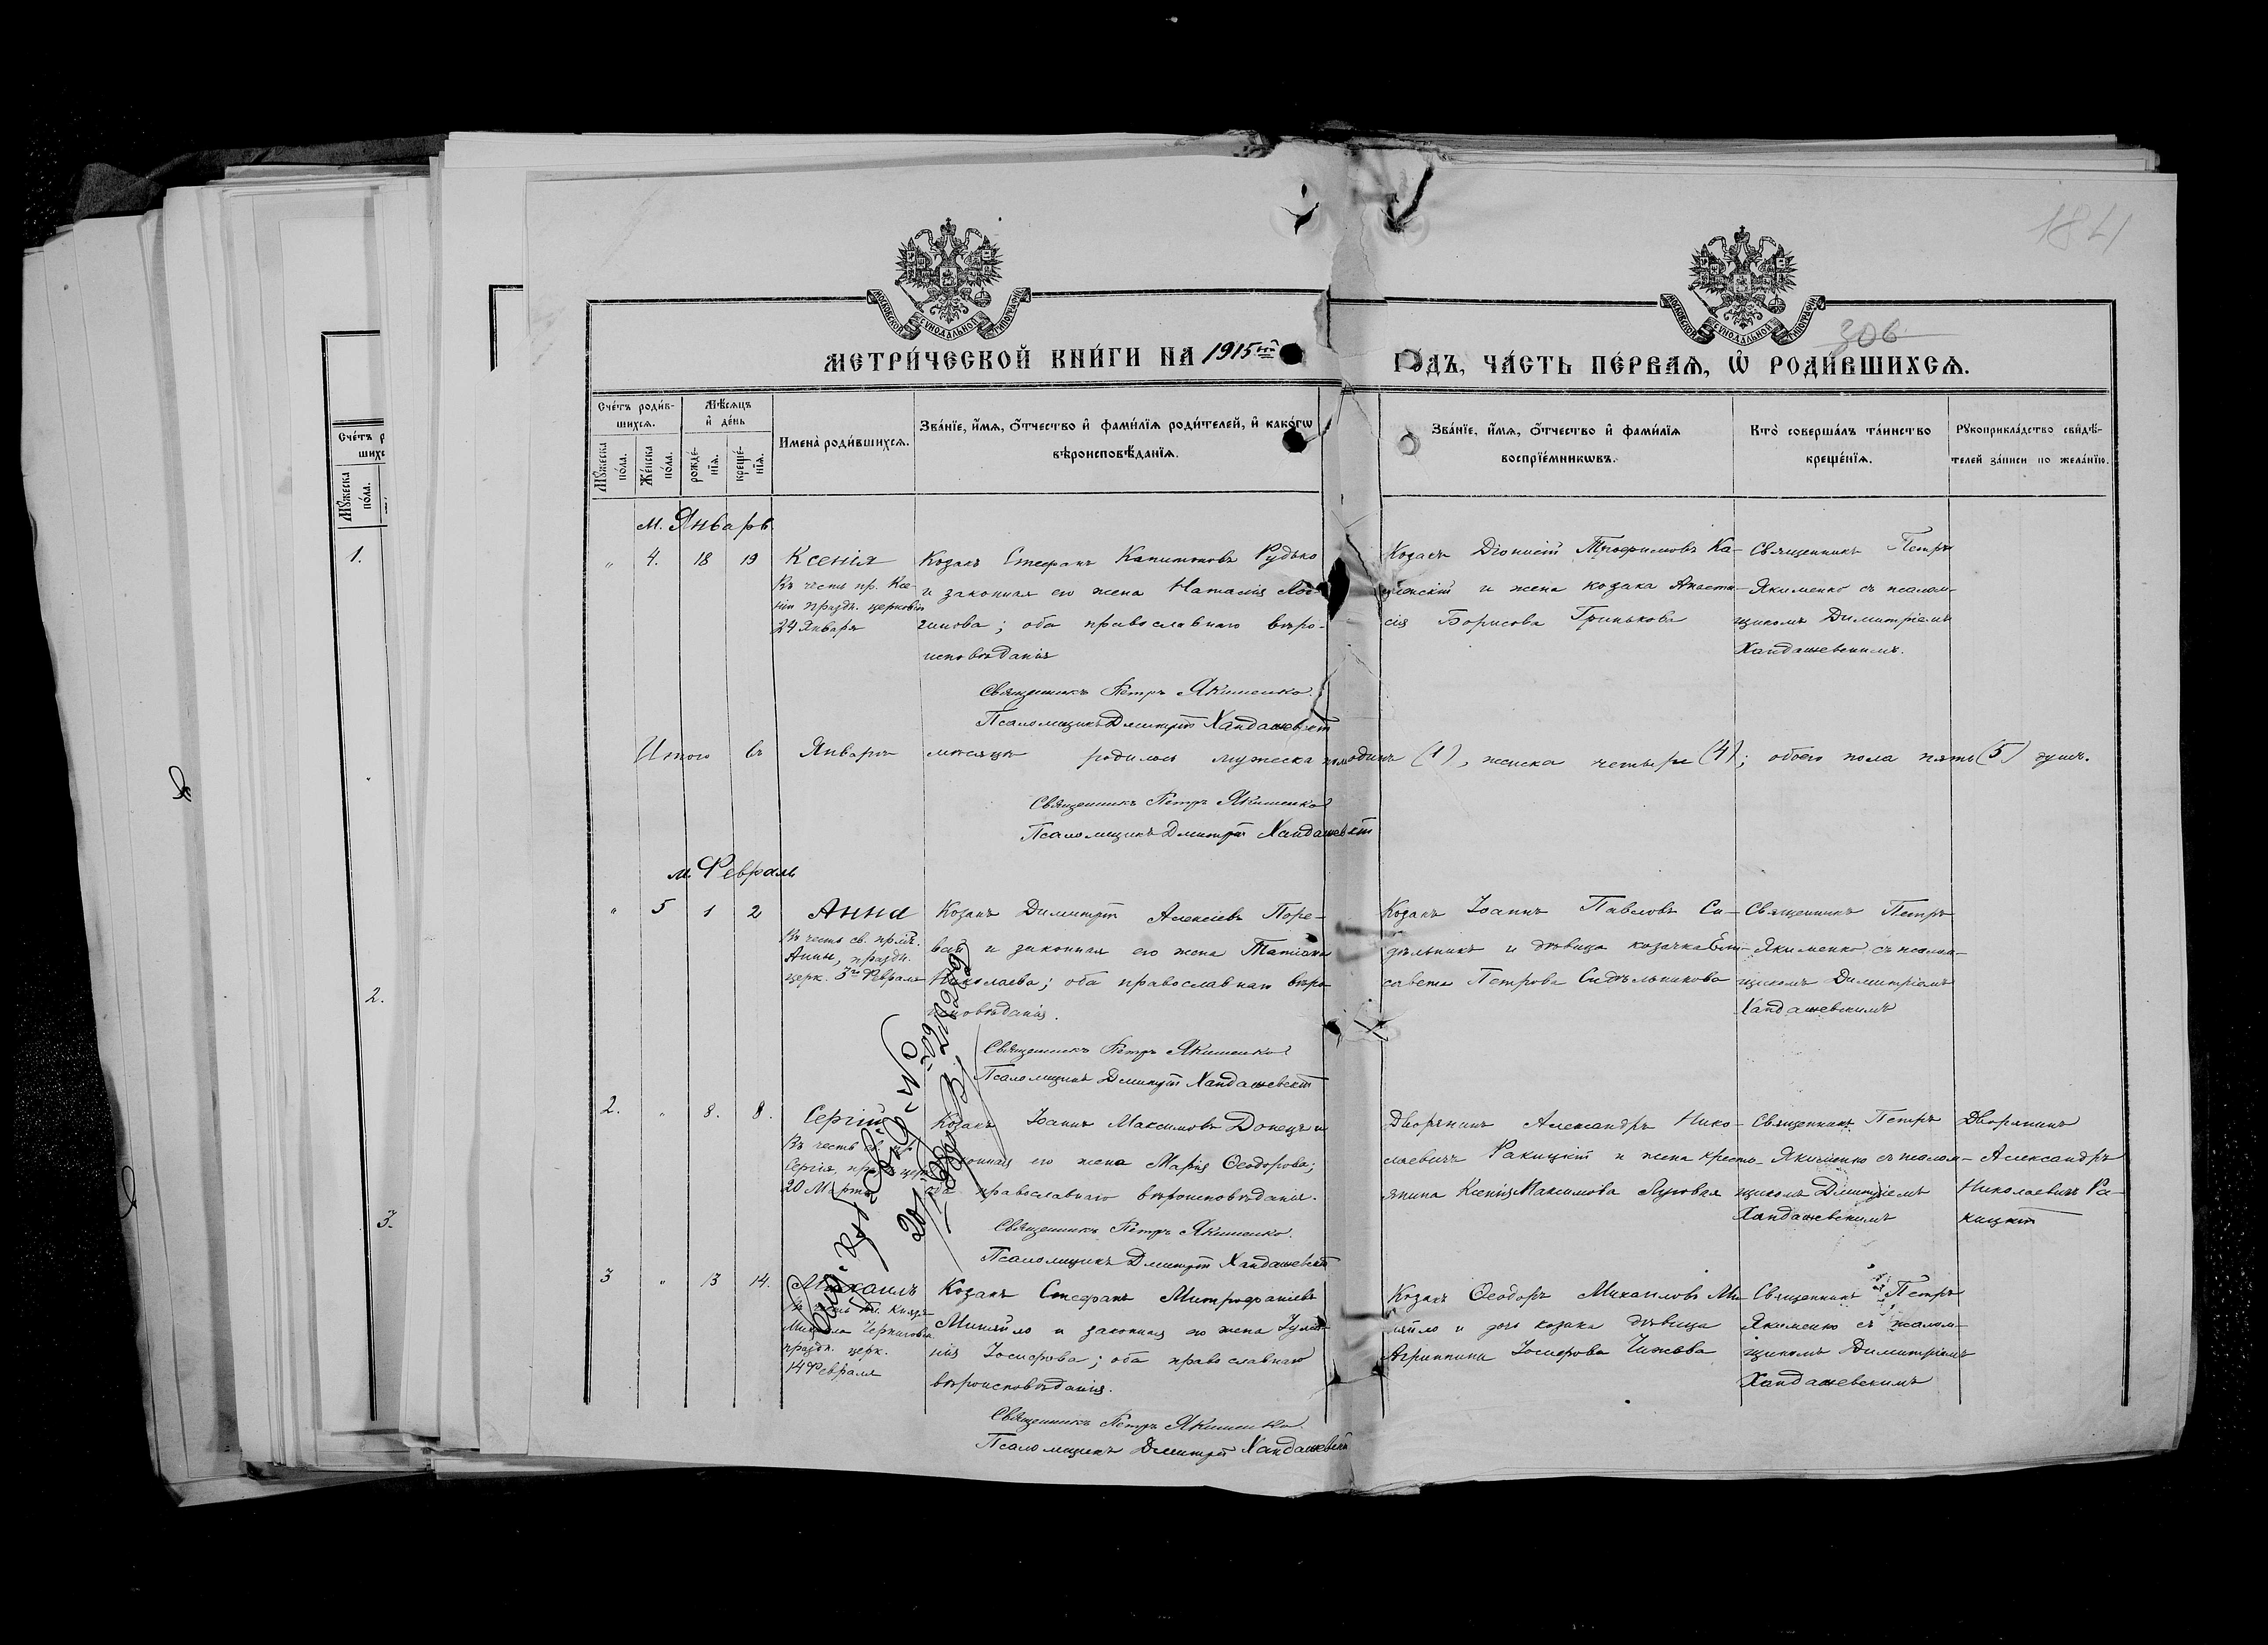 184
306
МОСКОВСКОЙ СѴНОДАЛЬНОЙ ТИПОГРАФІИ
МОСКОВСКОЙ СѴНОДАЛЬНОЙ ТИПОГРАФІИ
МЕТРИ́ЧЕСКОЙ КНИ́ГИ НА 1915ый
ГО́ДЪ, ЧА́СТЬ ПЕ́РВАѦ, Ѽ РОДИ́ВШИХСѦ.
Сче́тъ роди́в-
шихсѧ.
Мꙋ́жеска по́ла.
Же́нска по́ла.
Мѣ́сѧцъ
и҆ де́нь
рожде́-
нїѧ.
креще́-
нїѧ.
Имена̀ роди́вшихсѧ.
Зва́нїе, и҆́мѧ, ѻ҆́тчество и҆ фами́лїѧ роди́телей, и҆ како́гѡ
вѣроисповѣ́данїѧ.
Зва́нїе, и҆́мѧ, ѻ҆́тчество и҆ фами́лїѧ
воспрїе́мникѡвъ.
Кто̀ соверша́лъ та́инство
креще́нїѧ.
Рꙋкоприкла́дство свидѣ́-
телей за́писи по жела́нїю.
м. Январь
" 4. 18 19 Ксенія
Въ честь пр. Ксе-
ніи праздн. церковію
24 Января
Козакъ Стефанъ Капитоновъ Рудько
и законная его жена Наталія Лон-
гинова; оба православнаго вѣро-
исповѣданія
Священникъ Петръ Якименко.
Псаломщикъ Димитрій Хандашевскій
Козакъ Діонисій Трофимовъ Ка-
и жена козака Анаста-
сія Борисова Гринькова
Священникъ Петръ
Якименко съ псалом-
щикомъ Димитріемъ
Хандашевскимъ.
Итого въ Январѣ мѣсяцѣ родилось мужеска пола одинъ (1), женска четыре (4); обоего пола пять (5) душъ.
Священникъ Петръ Якименко
Псаломщикъ Димитрій Хандашевскій
м. Февраль
" 5 1 2 Анна
Въ честь св. прав.
Анны, праздн.
церк. 3го Февраля
Козакъ Димитрій Алексіевъ Поре-
вай и законная его жена Татіана
Николаева; оба православнаго вѣро-
исповѣданія.
Священникъ Петръ Якименко
Псаломщикъ Димитрій Хандашевскій
Козакъ Іоаннъ Павловъ Си-
дѣльникъ и дѣвица козачка Ели-
савета Петрова Сидѣльникова
Священникъ Петръ
Якименко съ псалом-
щикомъ Димитріемъ
Хандашевскимъ
2. " 8. 8. Сергій
Въ честь св.
Сергія, праз церк
20 Марта
Козакъ Іоаннъ Максимовъ Донецъ и
законная его жена Марія Ѳеодорова;
оба православнаго вѣроисповѣданія.
Священникъ Петръ Якименко.
Псаломщикъ Димитрій Хандашевскій
Дворянинъ Александръ Нико-
лаевичъ Ракицкій и жена кресть-
янина Ксенія Максимова Луговая
Священникъ Петръ
Якименко съ псалом-
щикомъ Димитріемъ
Хандашевскимъ
Дворянинъ
Александръ
Николаевичъ Ра-
кицкій
3 " 13 14. Михаилъ
Въ честь бл. Князя
Михаила Чернигов.
праздн. церк.
14 Февраля
Козакъ Стефанъ Митрофаніевъ
Миняйло и законная его жена Іулiа-
нія Іосифова; оба православнаго
вѣроисповѣданія.
Священникъ Петръ Якименко
Псаломщикъ Димитрій Хандашевскій
Козакъ Ѳеодоръ Михаиловъ Ми-
няйло и дочь козака дѣвица
Агриппина Іосифова Чижова
Священникъ Петръ
Якименко съ псалом-
щикомъ Димитріемъ
Хандашевскимъ
Сче́тъ р
шихс
Мꙋ́жеска по́ла.
1.
2.
3.